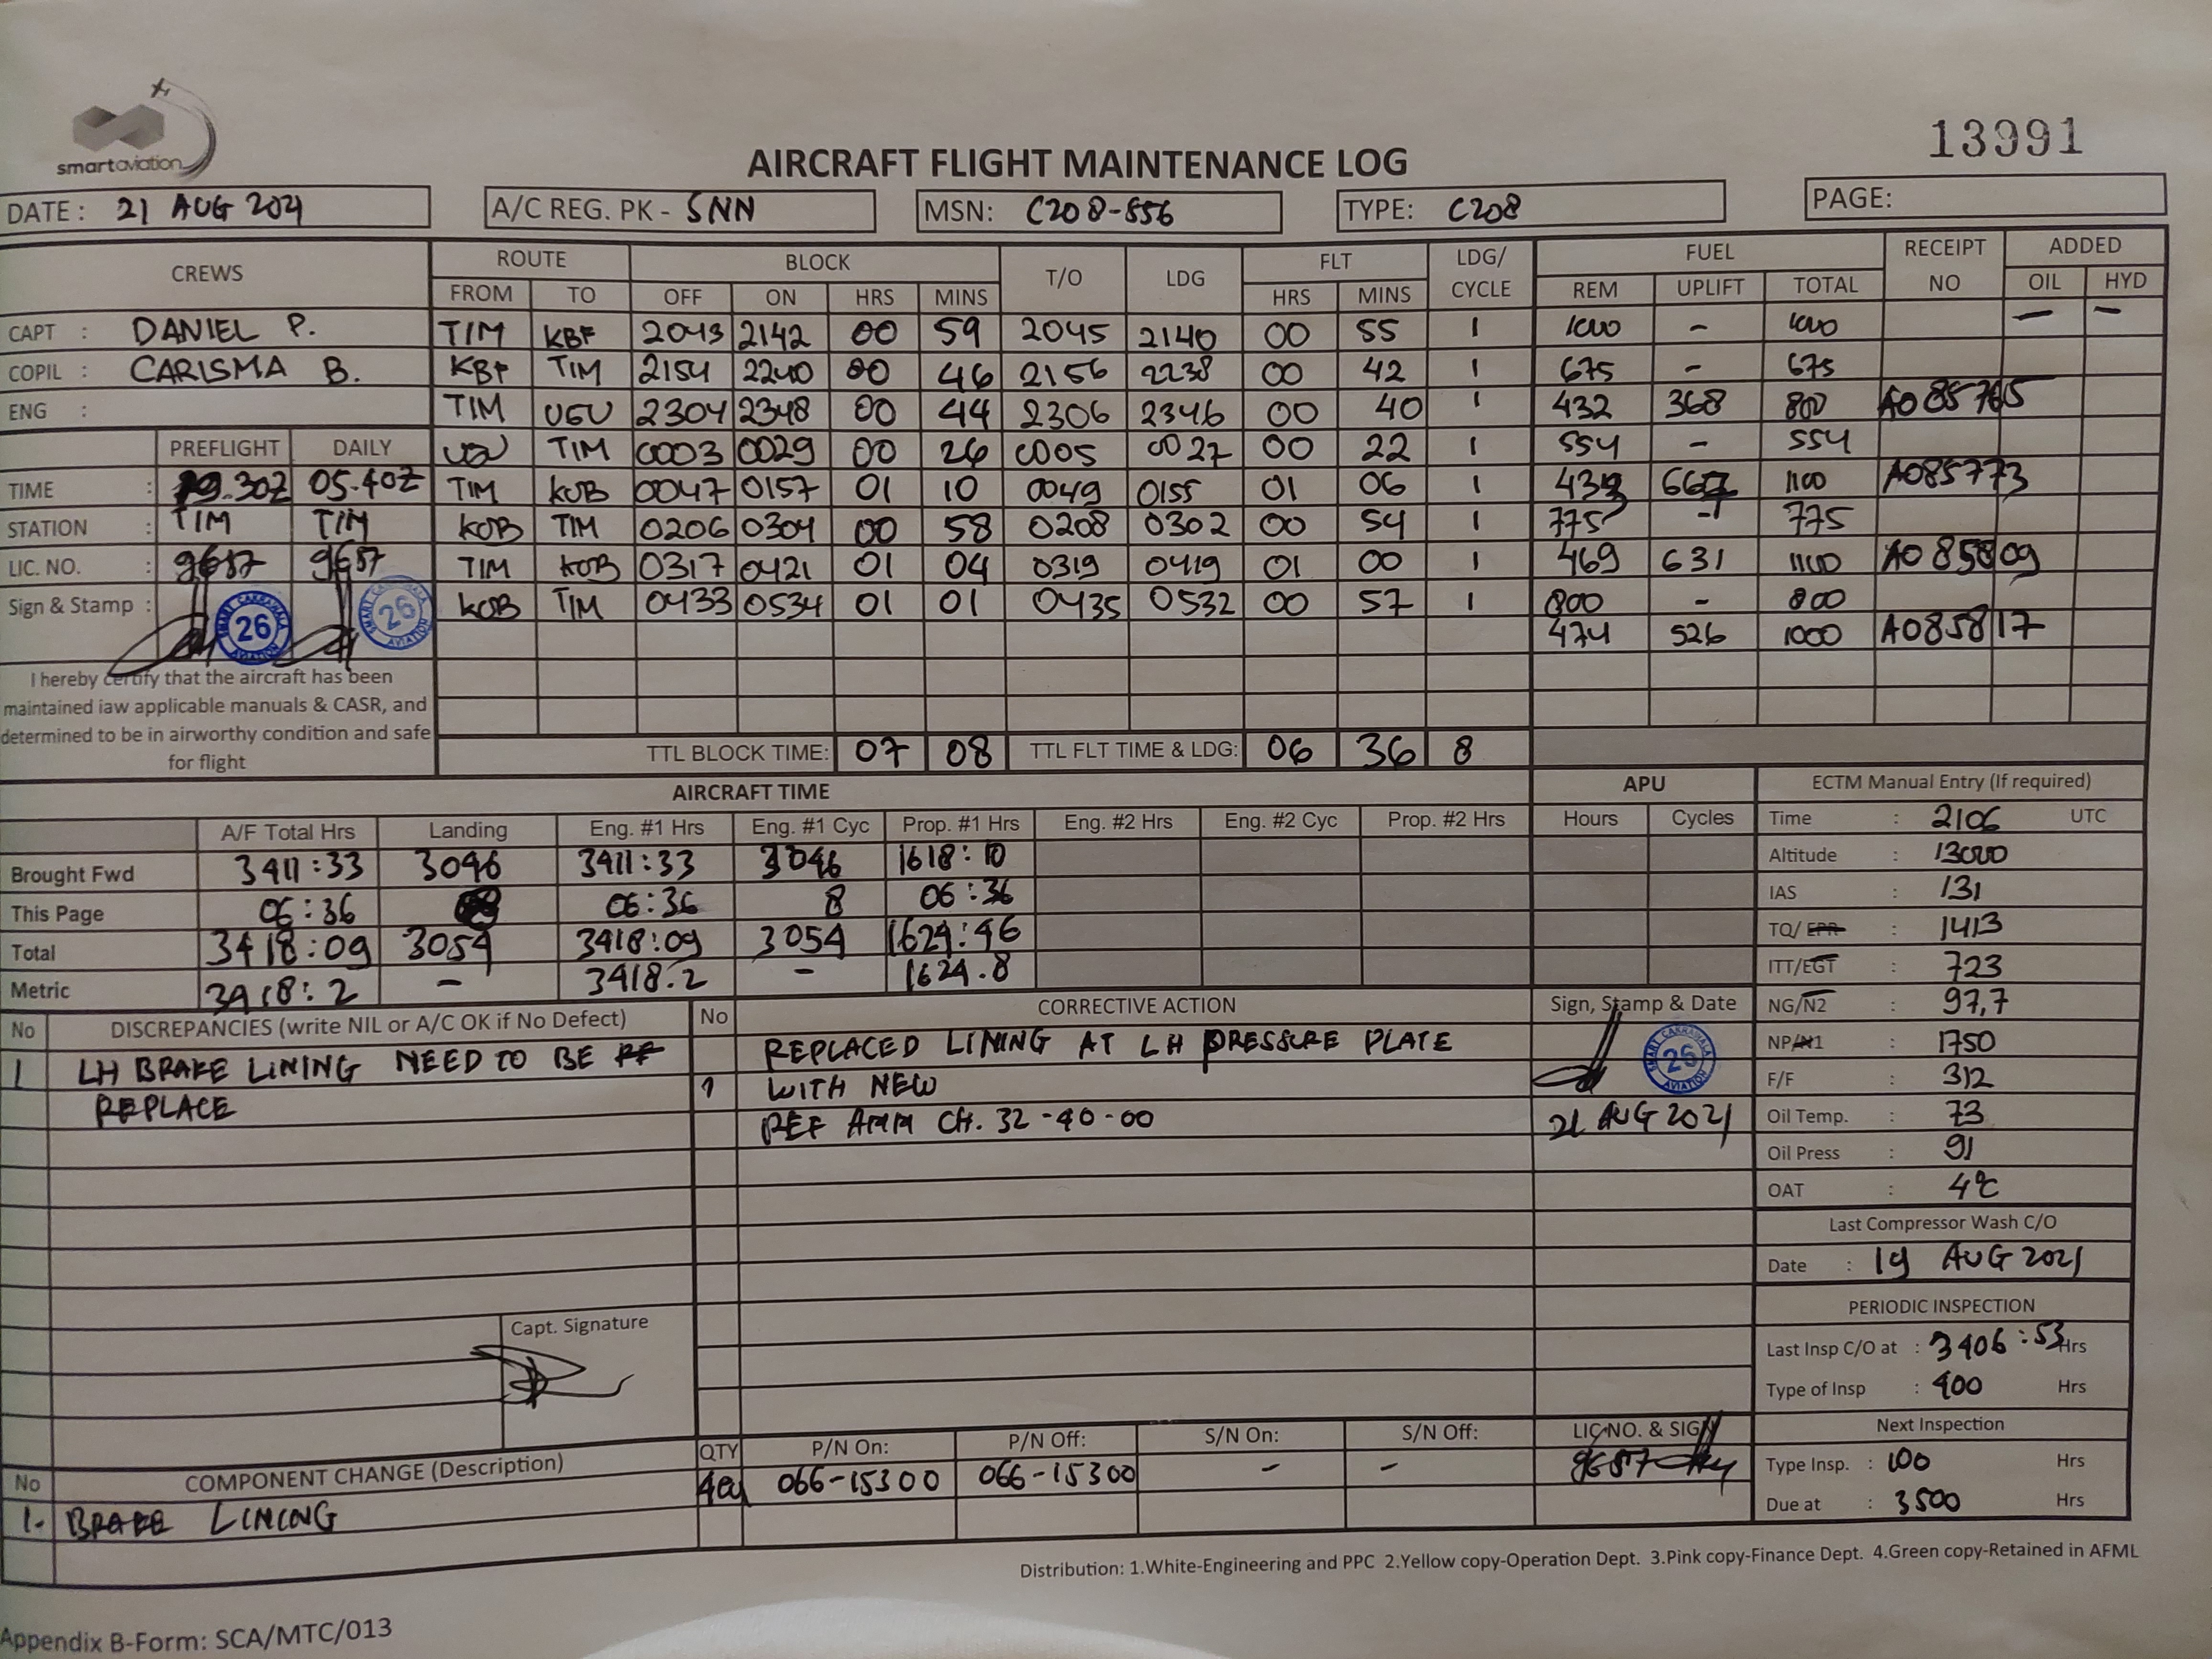 smart aviation
13991
AIRCRAFT FLIGHT MAINTENANCE LOG
DATE : 21 AUG 2021 A/C REG. PK - SNN MSN: C208-556 TYPE: C208 PAGE:
CREWS ROUTE BLOCK T/O LDG FLT LDG/ CYCLE FUEL RECEIPT NO ADDED
FROM TO OFF ON HRS MINS HRS MINS REM UPLIFT TOTAL OIL HYD
CAPT : DANIEL P. TIM KBF 2043 2142 00 59 2045 2140 00 55 1 1000 - 1000 - -
COPIL : CARISMA B. KBF TIM 2154 2240 00 46 2156 2238 00 42 1 675 - 675
ENG : TIM UGU 2304 2348 00 44 2306 2346 00 40 1 432 368 800 A085765
PREFLIGHT DAILY TIM 0003 0029 00 26 0005 0027 00 22 1 554 - 554
TIME : 19.30Z 05.40Z TIM KOB 0047 0157 01 10 0049 0155 01 06 1 1100 A085773
STATION : TIM TIM KOB TIM 0206 0304 00 58 0208 0302 00 54 1 775 - 775
LIC. NO. : 9687 9687 TIM KOB 0317 0421 01 04 0319 0419 01 00 1 469 631 1100 A085809
Sign & Stamp : KOB TIM 0433 0534 01 01 0435 0532 00 57 1 800 - 800
474 526 1000 A085817
SMART CAKRAWALA AVIATION 26
SMART CAKRAWALA AVIATION 26
I hereby certify that the aircraft has been
maintained iaw applicable manuals & CASR, and
determined to be in airworthy condition and safe
for flight
TTL BLOCK TIME: 07 08 TTL FLT TIME & LDG: 06 36 8
AIRCRAFT TIME APU
A/F Total Hrs Landing Eng. #1 Hrs Eng. #1 Cyc Prop. #1 Hrs Eng. #2 Hrs Eng. #2 Cyc Prop. #2 Hrs Hours Cycles
Brought Fwd 3411:33 3046 3411:33 3046 1618:10
This Page 06:36 06:36 8 06:36
Total 3418:09 3054 3418:09 3054 1624:46
Metric 3418:2 - 3418.2 - 1624.8
ECTM Manual Entry (If required)
Time : 2106 UTC
Altitude : 13000
IAS : 131
TQ/EPR : 1413
ITT/EGT : 723
NG/N2 : 97,7
NP/N1 : 1750
F/F : 312
Oil Temp. : 73
Oil Press : 91
OAT : 4°C
Last Compressor Wash C/O
Date : 19 AUG 2021
PERIODIC INSPECTION
Last Insp C/O at : 3406:53 Hrs
Type of Insp : 400 Hrs
Next Inspection
Type Insp. : 100 Hrs
Due at : 3500 Hrs
No DISCREPANCIES (write NIL or A/C OK if No Defect) No CORRECTIVE ACTION Sign, Stamp & Date
1 LH BRAKE LINING NEED TO BE
REPLACE
REPLACED LINING AT LH PRESSURE PLATE
1 WITH NEW
REF AMM CH. 32-40-00
SMART CAKRAWALA AVIATION 26
21 AUG 2021
Capt. Signature
No COMPONENT CHANGE (Description) QTY P/N On: P/N Off: S/N On: S/N Off: LIC NO. & SIGN
1. BRAKE LINING 4ea 066-15300 066-15300 - - 9687
Distribution: 1.White-Engineering and PPC 2.Yellow copy-Operation Dept. 3.Pink copy-Finance Dept. 4.Green copy-Retained in AFML
Appendix B-Form: SCA/MTC/013